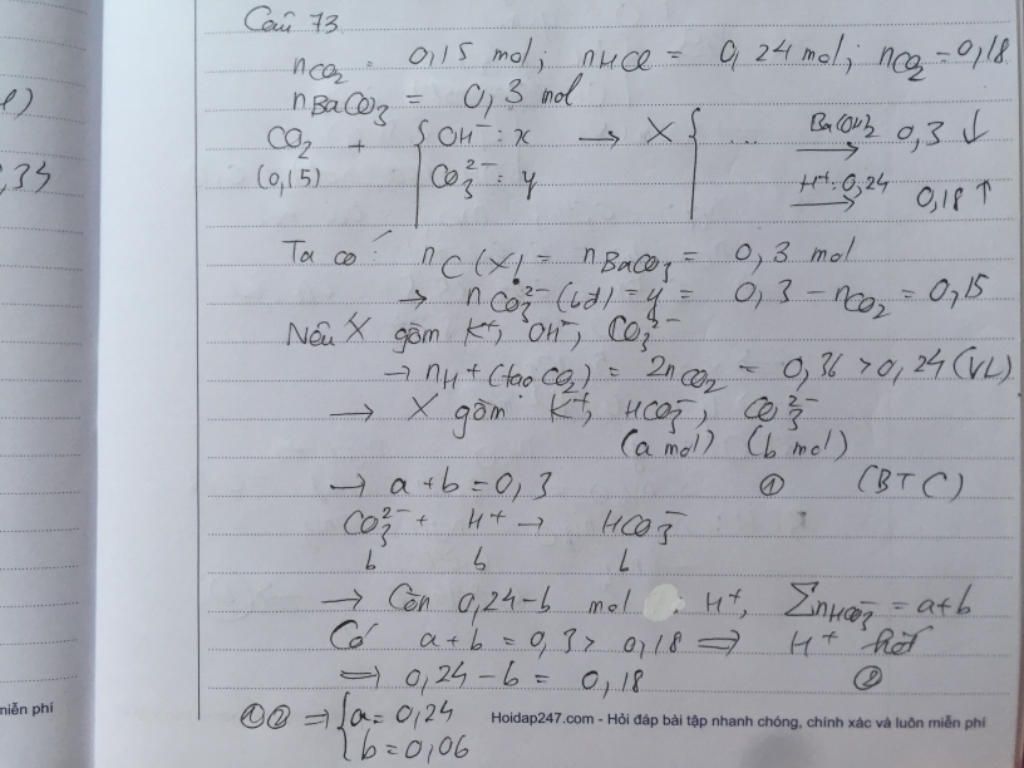 Câu 73
nCO2 = 0,15 mol; nHCl = 0,24 mol; nCO2 = 0,18
nBaCO3 = 0,3 mol
CO2 + { OH⁻: x → X { ... Ba(OH)2 → 0,3 ↓
(0,15) CO3²⁻: y H⁺: 0,24 → 0,18 ↑
l)
,34
Ta có: nC(X) = nBaCO3 = 0,3 mol
→ nCO3²⁻(bđ) = y = 0,3 - nCO2 = 0,15
Nếu X gồm K⁺, OH⁻, CO3²⁻
→ nH+ (tạo CO2) = 2nCO2 = 0,36 > 0,24 (VL)
→ X gồm K⁺, HCO3⁻, CO3²⁻
(a mol) (b mol)
→ a + b = 0,3 ① (BTC)
CO3²⁻ + H⁺ → HCO3⁻
b b b
→ Còn 0,24-b mol H⁺, ΣnHCO3⁻ = a+b
Có a + b = 0,3 > 0,18 ⇒ H⁺ hết
⇒ 0,24 - b = 0,18 ②
①② ⇒ { a = 0,24
b = 0,06
miễn phí
Hoidap247.com - Hỏi đáp bài tập nhanh chóng, chính xác và luôn miễn phí